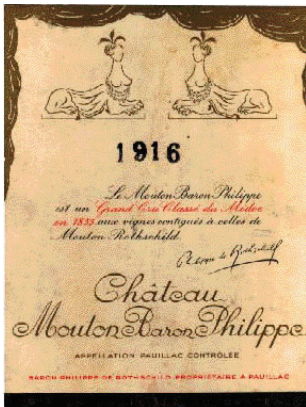 1916
Le Mouton Baron Philippe
est un Grand Cru Classé du Médoc
en 1855 aux vignes contiguës à celles de
Mouton Rothschild.
Philippe de Rothschild
Château
Mouton Baron Philippe
APPELLATION PAUILLAC CONTROLÉE
BARON PHILIPPE DE ROTHSCHILD PROPRIÉTAIRE A PAUILLAC